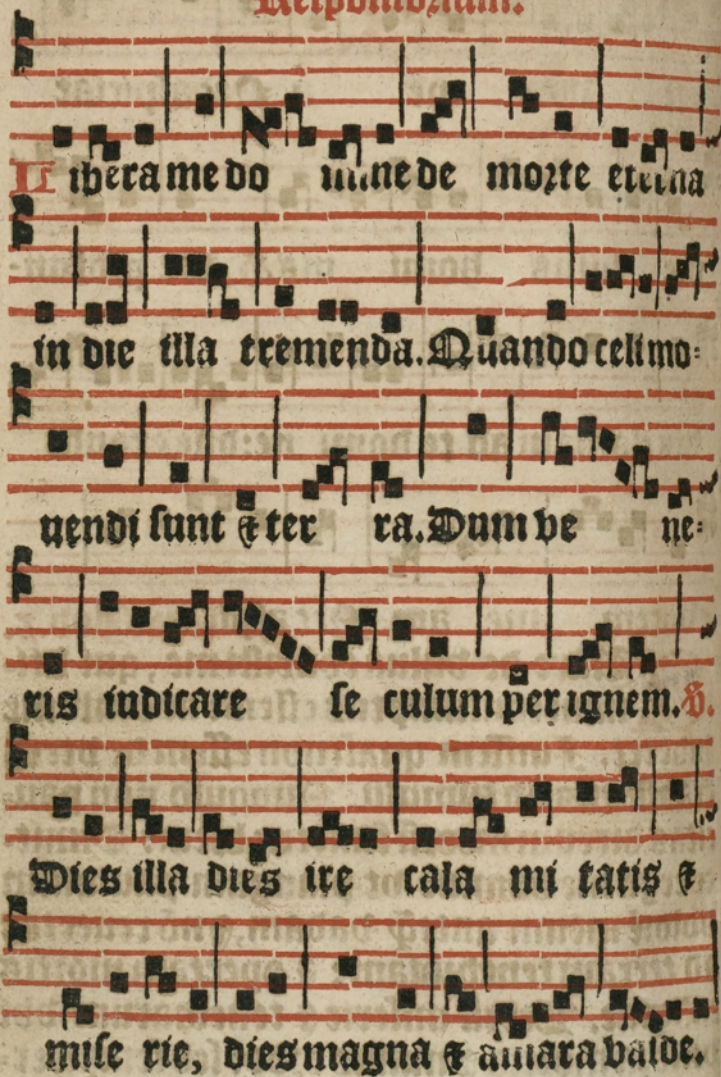 Responsorium.
Libera me domine de morte eterna
in die illa tremenda. Quando celi mo-
uendi sunt & terra. Dum vene-
ris iudicare seculum per ignem. V.
Dies illa dies ire calamitatis &
miserie, dies magna & amara valde.